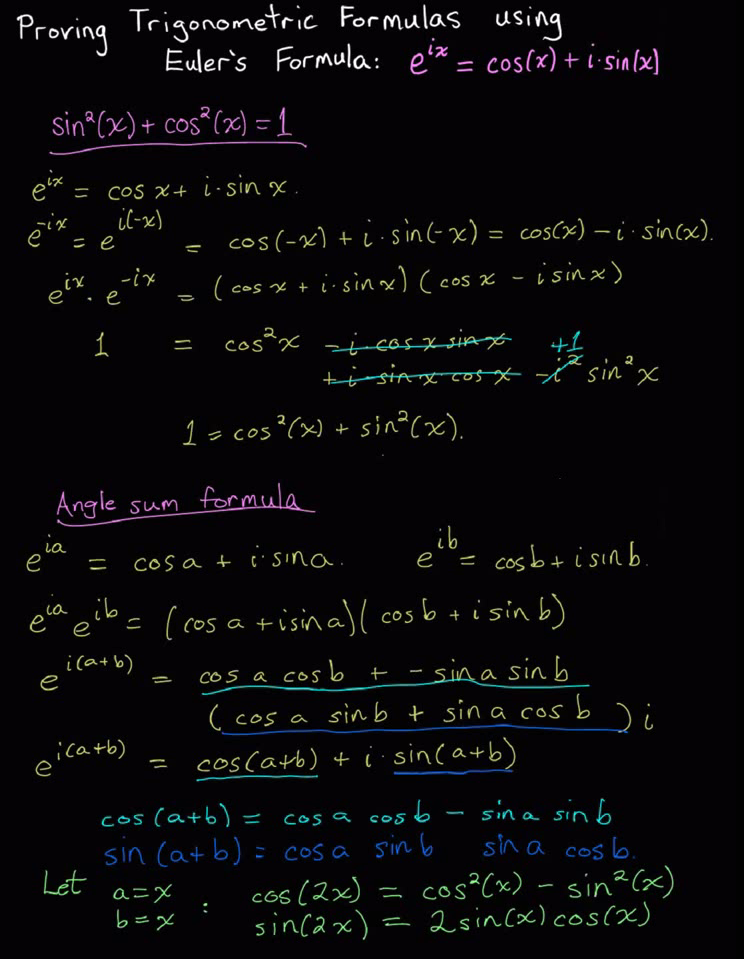 Proving Trigonometric Formulas using
Euler's Formula: e^{ix} = cos(x) + i·sin(x)
sin²(x) + cos²(x) = 1
e^{ix} = cos x + i·sin x.
e^{-ix} = e^{i(-x)} = cos(-x) + i·sin(-x) = cos(x) - i·sin(x).
e^{ix}·e^{-ix} = (cos x + i·sin x)(cos x - i sin x)
1 = cos²x - i·cos x sin x +1
+ i·sin x·cos x - i² sin²x
1 = cos²(x) + sin²(x).
Angle sum formula
e^{ia} = cos a + i·sin a. e^{ib} = cos b + i sin b.
e^{ia} e^{ib} = (cos a + i sin a)(cos b + i sin b)
e^{i(a+b)} = cos a cos b + - sin a sin b
(cos a sin b + sin a cos b) i
e^{i(a+b)} = cos(a+b) + i·sin(a+b)
cos(a+b) = cos a cos b - sin a sin b
sin(a+b) = cos a sin b sin a cos b.
Let a=x : cos(2x) = cos²(x) - sin²(x)
b=x sin(2x) = 2sin(x)cos(x)